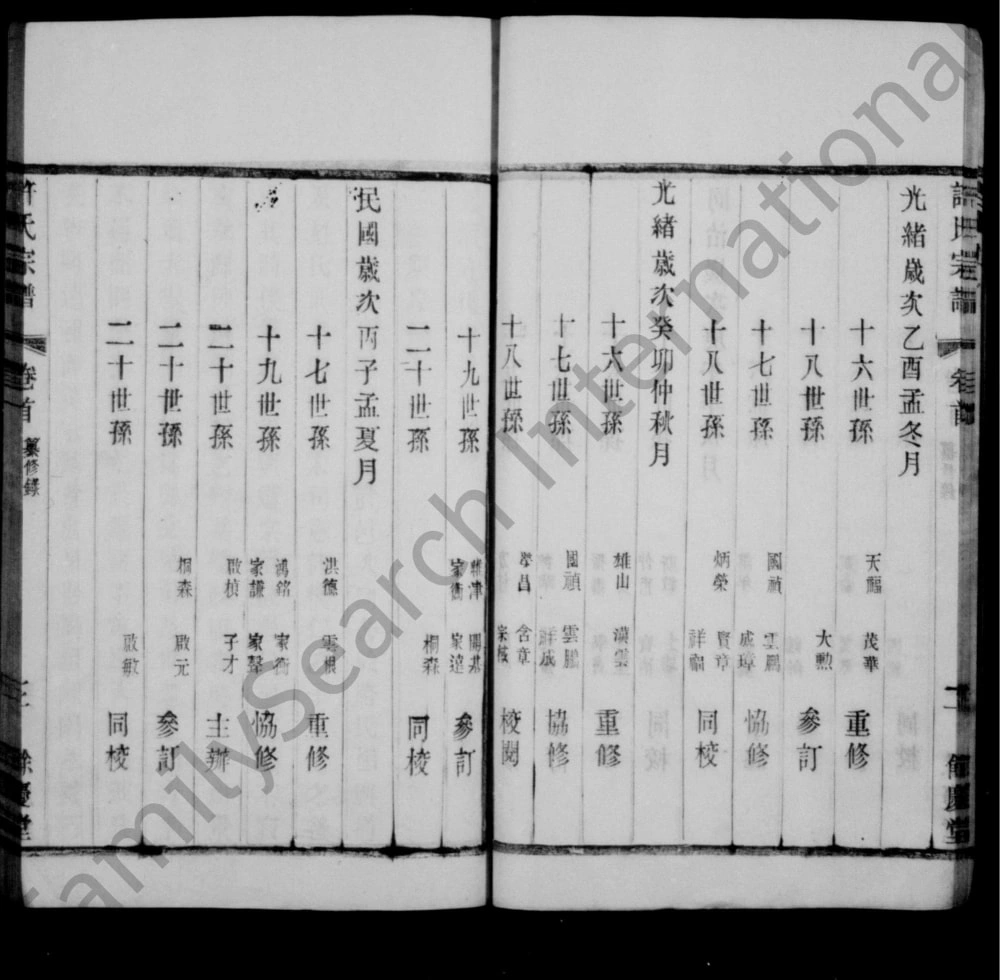 許氏宗譜 卷首 二 餘慶堂
光緒歲次乙酉孟冬月
十六世孫 天 茂華 重修
十八世孫 大勲 參訂
十七世孫 國禎 雲鵬 成璋 協修
十八世孫 炳榮 賢章 祥福 同校
光緒歲次癸卯仲秋月
十六世孫 雄山 漢雲 重修
十七世孫 國禎 雲鵬 祥成 協修
十八世孫 學昌 含章 宗 校閱
十九世孫 津 開 家衡 家遠 參訂
二十世孫 桐森 同校
民國歲次丙子孟夏月
十七世孫 洪德 雲根 重修
十九世孫 鴻銘 家衡 家謙 家聲 協修
二十世孫 啟楨 子才 主辦
二十世孫 桐森 啟元 參訂
二十世孫 啟敏 同校
許氏宗譜 卷首 纂修錄 三 餘慶堂
FamilySearch International